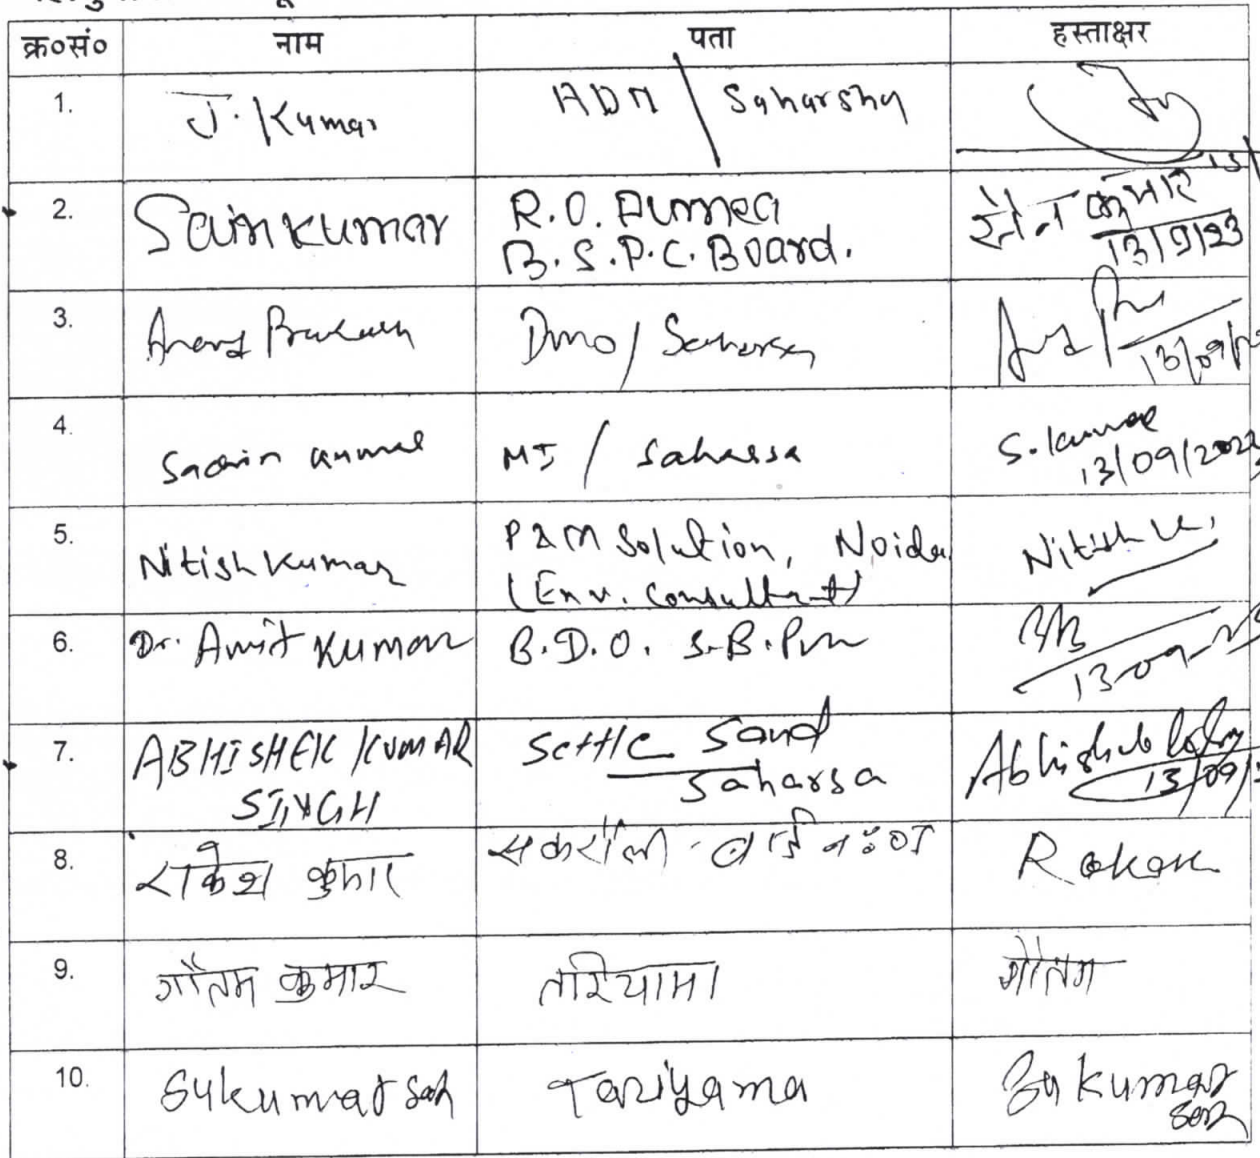 क्र०सं० नाम पता हस्ताक्षर
1. J. Kumar ADM / Saharsha
2. Sain kumar R.O. Purnea कुमार
B.S.P.C. Board. 13/9/23
3. Anand Prakash Dmo / Saharsa 13/09/
4. Sachin kumar MI / Saharsa S. kumar
13/09/2023
5. Nitish Kumar P&M Solution, Noida Nitish K.
(Env. Consultant)
6. Dr. Amit Kumar B.D.O. S.B.Pur 13-09-23
7. ABHISHEK KUMAR Settle Sand Abhishek
SINGH Saharsa 13/09/
8. राकेश कुमार सकरौली - वार्ड नं: 07 Rakesh
9. गौतम कुमार तरियामा गौतम
10. Sukumar sah Tariyama Su kumar
sah